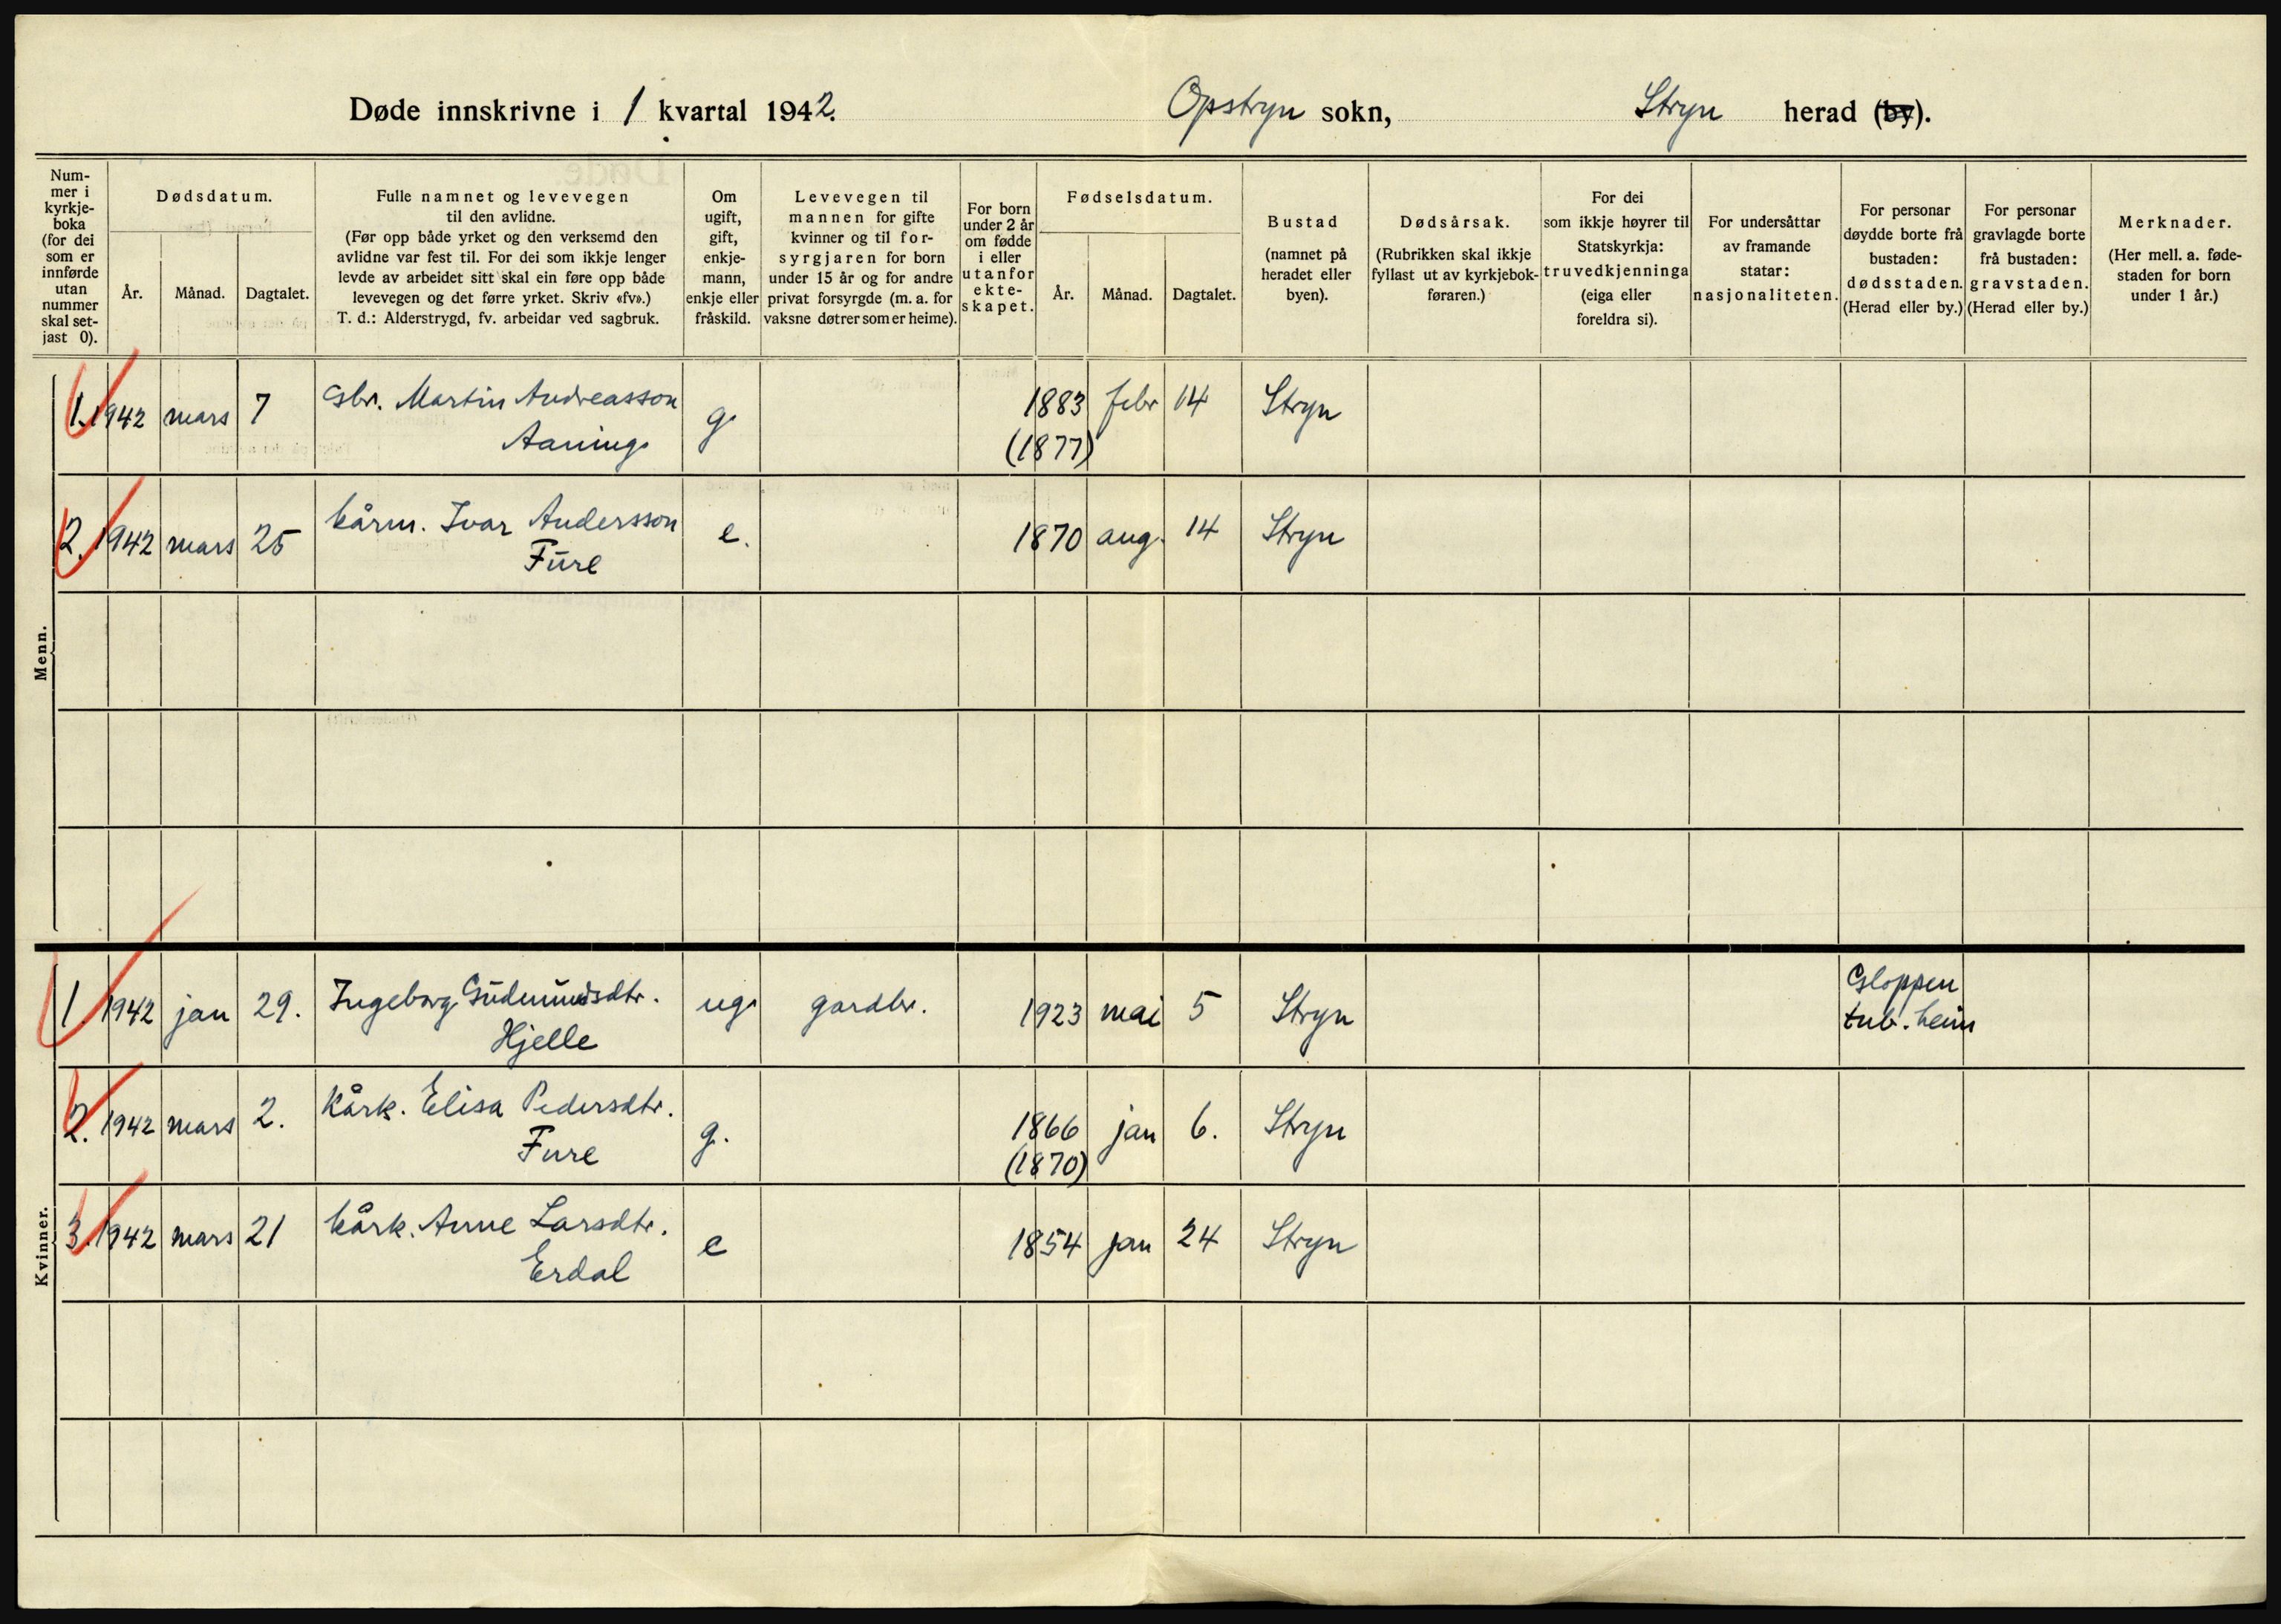 Døde innskrivne i 1 kvartal 1942. Opstryn sokn, Stryn herad (by).
Num-
mer i
kyrkje-
boka
(for dei
som er
innførde
utan
nummer
skal set-
jast 0).
Dødsdatum.
År. Månad. Dagtalet.
Fulle namnet og levevegen
til den avlidne.
(Før opp både yrket og den verksemd den
avlidne var fest til. For dei som ikkje lenger
levde av arbeidet sitt skal ein føre opp både
levevegen og det førre yrket. Skriv «fv».)
T. d.: Alderstrygd, fv. arbeidar ved sagbruk.
Om
ugift,
gift,
enkje-
mann,
enkje eller
fråskild.
Levevegen til
mannen for gifte
kvinner og til for-
syrgjaren for born
under 15 år og for andre
privat forsyrgde (m. a. for
vaksne døtrer som er heime).
For born
under 2 år
om fødde
i eller
utanfor
ekte-
skapet.
Fødselsdatum.
År. Månad. Dagtalet.
Bustad
(namnet på
heradet eller
byen).
Dødsårsak.
(Rubrikken skal ikkje
fyllast ut av kyrkjebok-
føraren.)
For dei
som ikkje høyrer til
Statskyrkja:
truvedkjenninga
(eiga eller
foreldra si).
For undersåttar
av framande
statar:
nasjonaliteten.
For personar
døydde borte frå
bustaden:
dødsstaden.
(Herad eller by.)
For personar
gravlagde borte
frå bustaden:
gravstaden.
(Herad eller by.)
Merknader.
(Her mell. a. føde-
staden for born
under 1 år.)
Menn.
1. 1942 mars 7 Gbr. Martin Andreasson g. 1883 febr 14 Stryn
Aaning. (1877)
2. 1942 mars 25 kårm. Ivar Andersson e. 1870 aug. 14 Stryn
Fure
Kvinner.
1. 1942 jan 29. Ingeborg Gudmundsdtr. ug. gardbr. 1923 mai 5 Stryn Gloppen
Hjelle tub. heim
2. 1942 mars 2. Kårk. Elisa Pedersdtr. g. 1866 jan 6. Stryn
Fure (1870)
3. 1942 mars 21 kårk. Anne Larsdtr. e 1854 jan 24 Stryn
Erdal